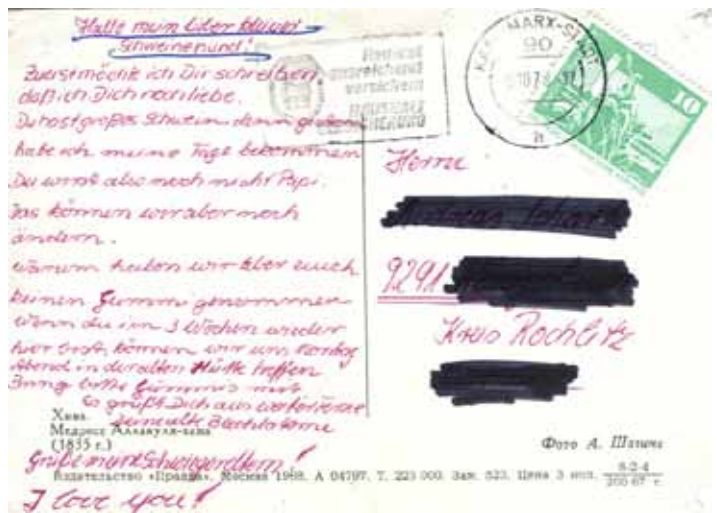 Hallo mein lieber blauer
Schweinehund!
Zuerst möchte ich Dir schreiben,
daß ich Dich noch liebe.
Du hast großes Schwein, denn gestern
habe ich meine Tage bekommen
Du wirst also noch nicht Papi.
Das können wir aber noch
ändern.
warum haben wir aber auch
keinen Gummi genommen
wenn du in 3 Wochen wieder
hier bist, können wir uns
Abend in der alten Hütte treffen
Bring bitte Gümmis mit
Es grüßt Dich aus
deine alte
Grüße meine Schwiegereltern!
I love you!
MARX-STADT
90
Hausrat
ausreichend
versichern
HAUSRAT
VERSICHERUNG
10
Herrn
9291
Kreis Rochlitz
Хива.
Медресе Аллакули-хана
(1835 г.)
Фото А.
Издательство «Правда», Москва А 04797. Т. 223 000. Зак. 823. Цена 3 коп.
8-2-4
200-67 г.